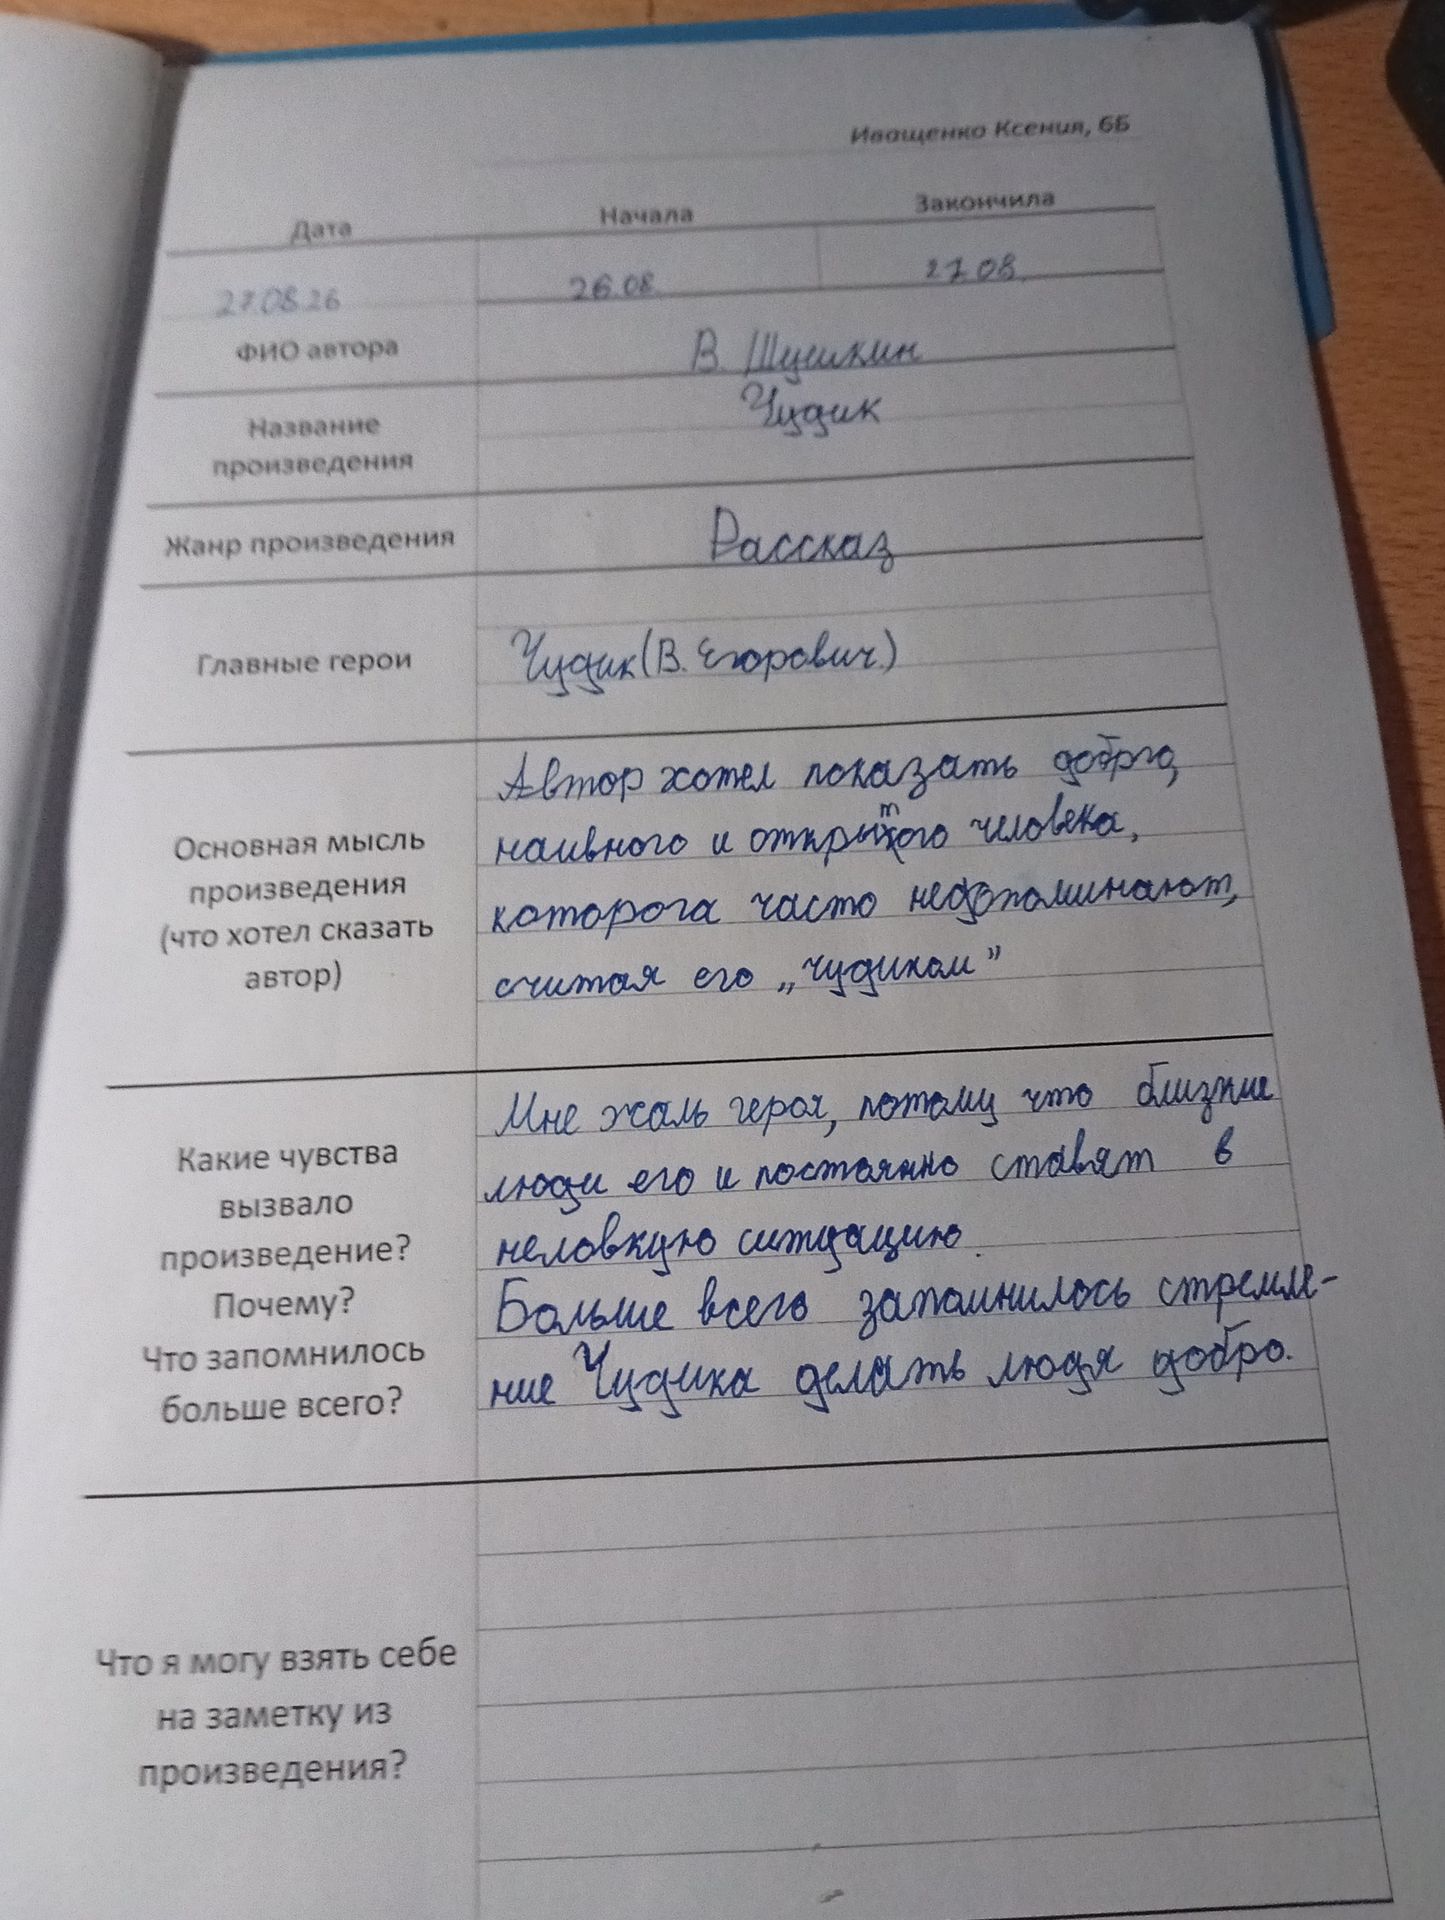 Иващенко Ксения, 6Б
Дата Начала Закончила
27.08.26 26.08. 27.08.
ФИО автора В. Шукшин
Название Чудик
произведения
Жанр произведения Рассказ
Главные герои Чудик (В. Егорович.)
Автор хотел показать доброго,
наивного и открытого человека,
которога часто недопоминают,
считая его „чудиком”
Основная мысль
произведения
(что хотел сказать
автор)
Мне жаль героя, потому что близкие
люди его и постоянно ставят в
неловкую ситуацию.
Больше всего запомнилось стремле-
ние Чудика делать людя добро.
Какие чувства
вызвало
произведение?
Почему?
Что запомнилось
больше всего?
Что я могу взять себе
на заметку из
произведения?